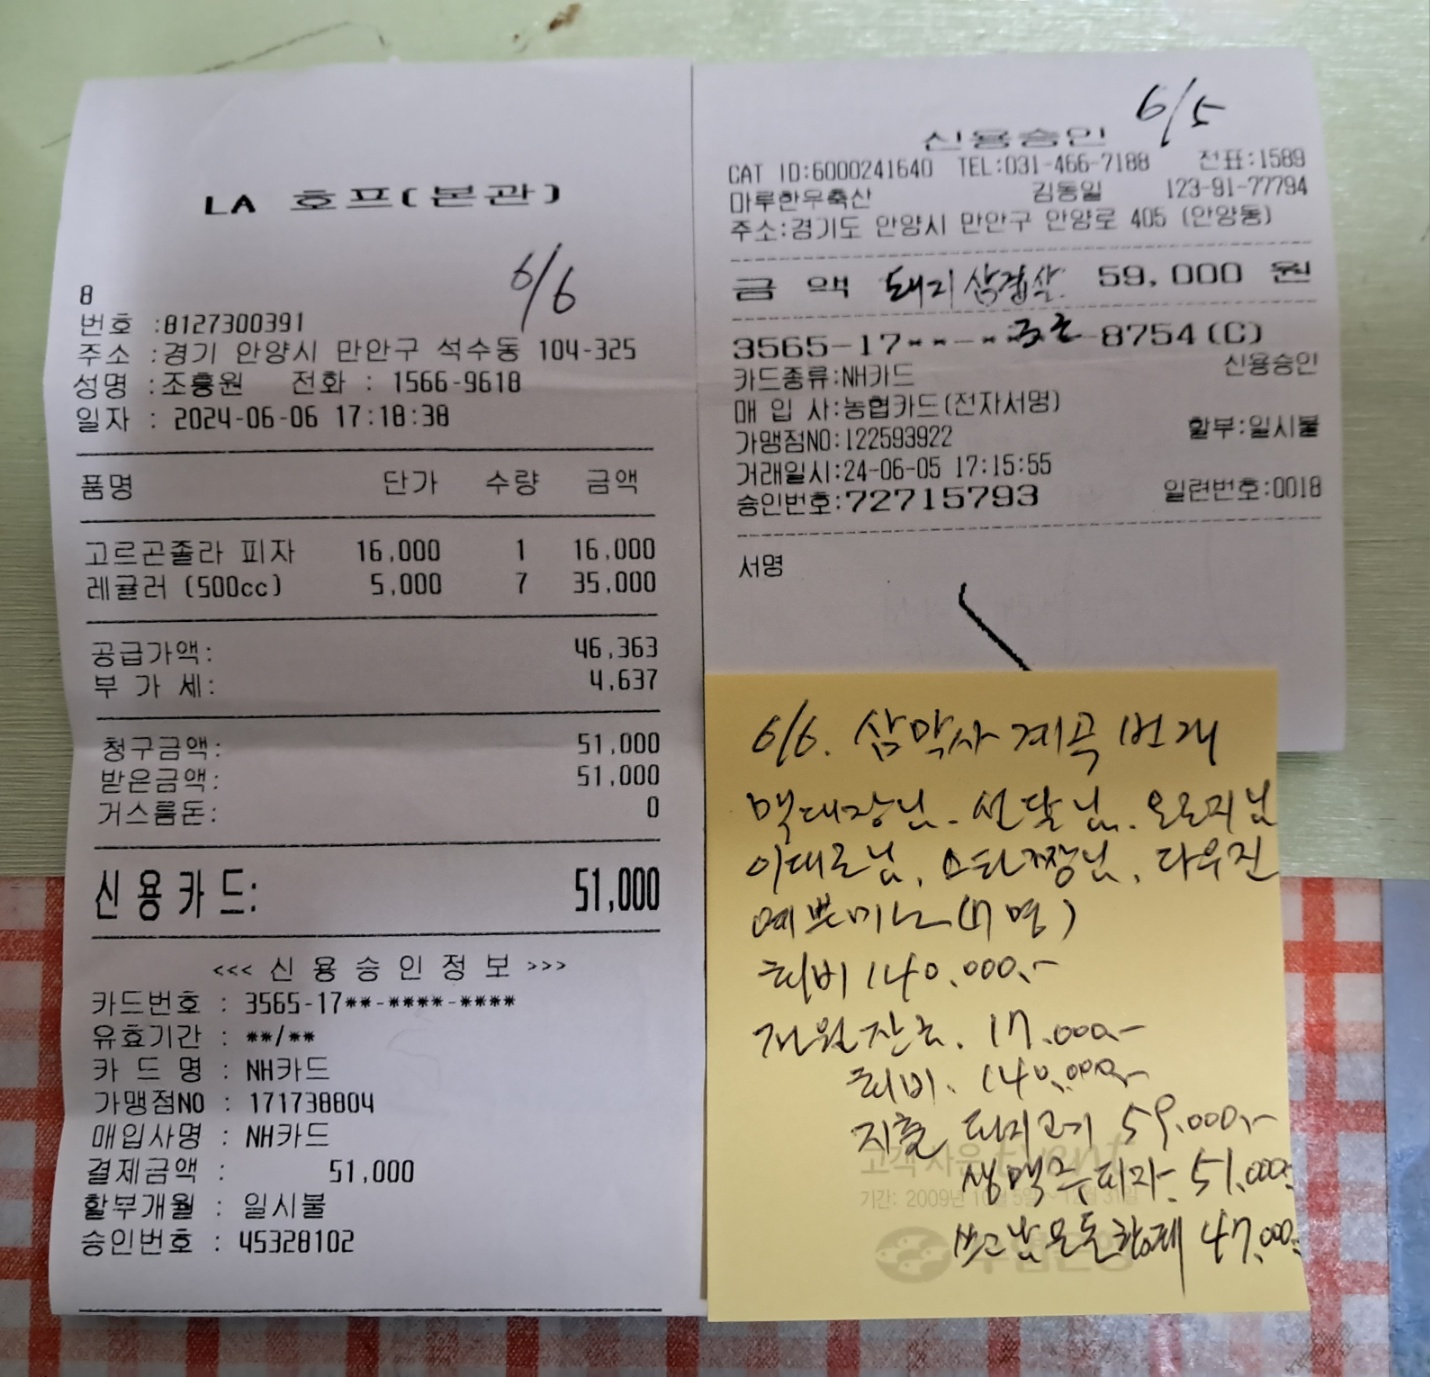 LA 호프(본관)
6/6
8
번호 :8127300391
주소 :경기 안양시 만안구 석수동 104-325
성명 :조흥원 전화 : 1566-9618
일자 : 2024-06-06 17:18:38
품명 단가 수량 금액
고르곤졸라 피자 16,000 1 16,000
레귤러 (500cc) 5,000 7 35,000
공급가액: 46,363
부 가 세: 4,637
청구금액: 51,000
받은금액: 51,000
거스름돈: 0
신용카드: 51,000
<<< 신 용 승 인 정 보 >>>
카드번호 : 3565-17**-****-****
유효기간 : **/**
카 드 명 : NH카드
가맹점NO : 171738804
매입사명 : NH카드
결제금액 : 51,000
할부개월 : 일시불
승인번호 : 45328102
6/5
신용승인
CAT ID:6000241640 TEL:031-466-7188 전표:1589
마루한우축산 김동일 123-91-77794
주소:경기도 안양시 만안구 안양로 405 (안양동)
금 액 돼지 삼겹살 59,000 원
3565-17**-** -8754(C)
카드종류:NH카드 신용승인
매 입 사:농협카드(전자서명)
가맹점NO:122593922 할부:일시불
거래일시:24-06-05 17:15:55
승인번호:72715793 일련번호:0018
서명
6/6. 삼막사 계곡 번개
맥대장님. 선달님. 오로지님
이대로님, 스타짱님, 다우진
예쁘미노 (7명)
회비 140.000.-
전월잔액. 17.000.-
회비. 140.000.-
지출 돼지고기 59.000.-
생맥주피자. 51.000.-
쓰고남은돈현재 47.000.-
고객 사은 Event
기간: 2009년